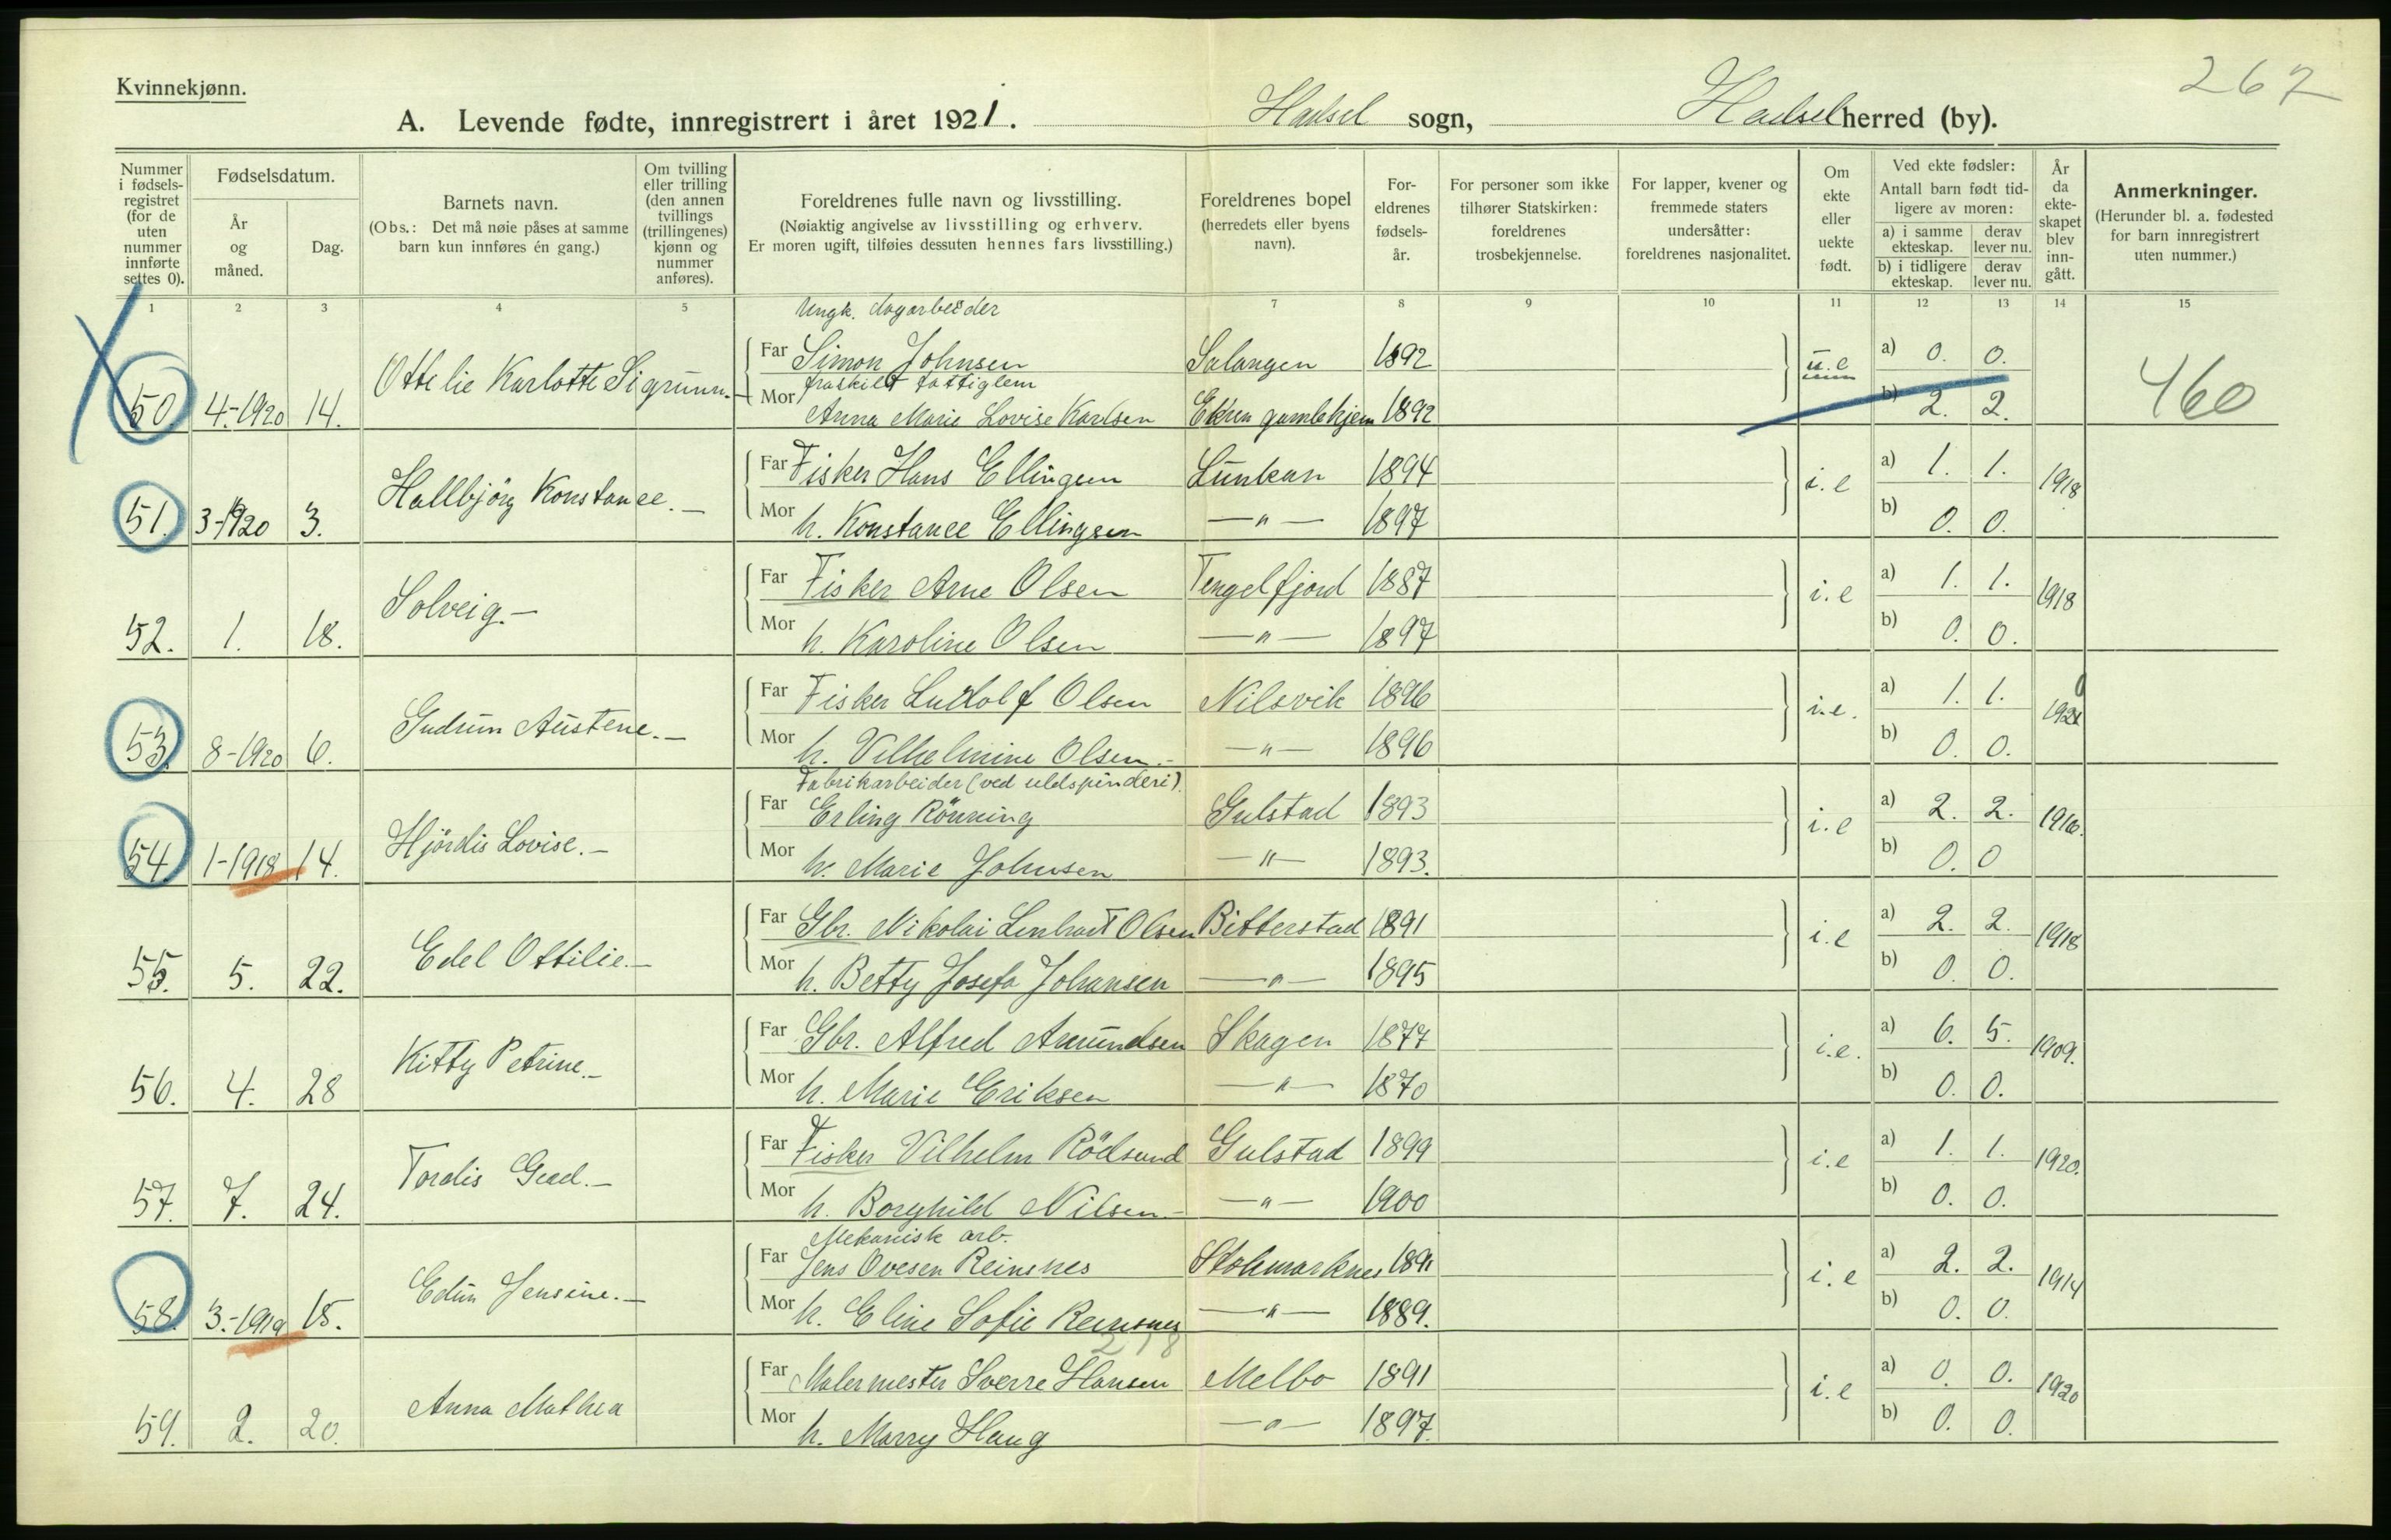 267
Kvinnekjønn.
A. Levende fødte, innregistrert i året 1921. Hadsel sogn, Hadsel herred (by).
Nummer i fødsels-registret (for de uten nummer innførte settes 0).
Fødselsdatum.
År og måned.
Dag.
Barnets navn.
(Obs.: Det må nøie påses at samme barn kun innføres én gang.)
Om tvilling eller trilling (den annen tvillings (trillingenes) kjønn og nummer anføres).
Foreldrenes fulle navn og livsstilling.
(Nøiaktig angivelse av livsstilling og erhverv.
Er moren ugift, tilføies dessuten hennes fars livsstilling.)
Foreldrenes bopel (herredets eller byens navn).
For-eldrenes fødsels-år.
For personer som ikke tilhører Statskirken: foreldrenes trosbekjennelse.
For lapper, kvener og fremmede staters undersåtter: foreldrenes nasjonalitet.
Om ekte eller uekte født.
Ved ekte fødsler:
Antall barn født tid-ligere av moren:
a) i samme ekteskap.
derav lever nu.
b) i tidligere ekteskap.
derav lever nu.
År da ekte-skapet blev inn-gått.
Anmerkninger.
(Herunder bl. a. fødested for barn innregistrert uten nummer.)
1 2 3 4 5 7 8 9 10 11 12 13 14 15
Ungk. dagarbeider
Far Simon Johnsen Salangen 1892 a) 0. 0.
50. 4.-1920 14. Ottelie Karlotte Sigrunn.- u.e 460
fraskilt fattiglem
Mor Anna Marie Lovise Karlsen Ekren gamlehjem 1892 b) 2. 2.
Far Fisker Hans Ellingsen Lunkan 1894 a) 1. 1.
51. 3-1920 3. Hallbjörg Konstance.- i.e 1918
Mor h. Konstance Ellingsen -"- 1897 b) 0. 0.
Far Fisker Arne Olsen Tengelfjord 1887 a) 1. 1.
52. 1. 18. Solveig.- i.e 1918
Mor h. Karoline Olsen -"- 1897 b) 0. 0.
Far Fisker Ludtolf Olsen Nilsvik 1896 a) 1. 1.
53. 8-1920 6. Gudrun Austene.- i.e.
Mor h. Vilhelmine Olsen.- -"- 1896 b) 0. 0.
Fabrikarbeider (ved uldspinderi).
Far Erling Rönning Gulstad 1893 a) 2. 2.
54. 1-1918 14. Hjördis Lovise.- i.e 1916.
Mor h. Marie Johnsen -"- 1893. b) 0. 0
Far Gbr. Nikolai Lenhart Olsen Bitterstad 1891 a) 2. 2.
55. 5. 22. Edel Ottilie.- i.e 1918
Mor h. Betty Josefa Johansen -"- 1895 b) 0. 0.
Far Gbr. Alfred Amundsen Skagen 1877 a) 6. 5.
56. 4. 28 Kitty Petrine.- i.e. 1909.
Mor h. Marie Eriksen -"- 1870 b) 0. 0.
Far Fisker Vilhelm Rödsand Gulstad 1899 a) 1. 1.
57. 7. 24. Tordis Gred.- i.e 1920.
Mor h. Borghild Nilsen.- -"- 1900 b) 0. 0.
Mekanisk arb.
Far Jens Ovesen Reinsnes Stokmarknes 1891 a) 2. 2.
58. 3.-1919 15. Edun Jensine.- i.e 1914
Mor h. Eline Sofie Reinsnes -"- 1889. b) 0. 0.
Far Malermester Sverre Hansen Melbo 1891 a) 0. 0.
59. 2. 20. Anna Mathea i.e 1920
Mor h. Marry Haug -"- 1897. b) 0. 0.